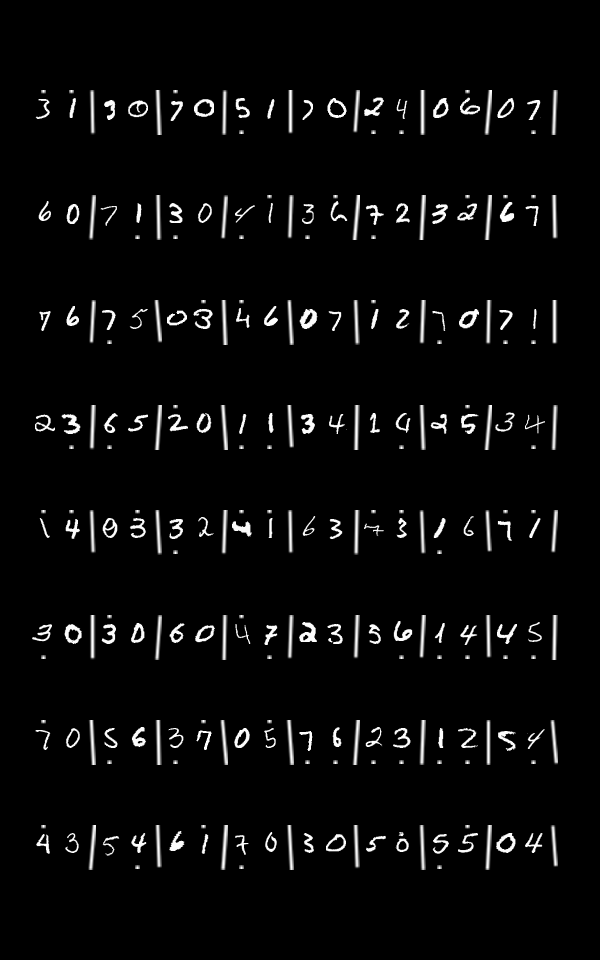 3̇ 1̇ | 3 0 | 7̇ 0 | 5̣ 1 | 7 0 | 2̣ 4̣ | 0 6̇ | 0 7̣ |
6 0 | 7 1̣ | 3̣ 0 | 4̣ 1̇ | 3̣ 6̇ | 7̣ 2 | 3 2̇ | 6̇ 7̇ |
7 6 | 7̣ 5 | 0 3̇ | 4̇ 6 | 0 7 | 1̇ 2 | 7̣ 0 | 7̣ 1̣ |
2 3̣ | 6̣ 5 | 2̇ 0 | 1̣ 1̣ | 3 4 | 1 4̣ | 2 5̇ | 3 4̣ |
1̇ 4̇ | 0 3̇ | 3̣ 2 | 4̇ 1̇ | 6 3 | 7̇ 3̇ | 1̣ 6 | 7̇ 1̇ |
3̣ 0 | 3̇ 0 | 6 0 | 4̇ 7̣ | 2 3 | 5 6̣ | 1̣ 4̣ | 4̣ 5̣ |
7̇ 0 | 5̣ 6 | 3̣ 7̇ | 0 5̇ | 7̣ 6̣ | 2̣ 3̣ | 1̣ 2̣ | 5 4̣ |
4̇ 3 | 5 4̣ | 6 1̇ | 7̣ 0 | 3 0 | 5 0 | 5̣ 5̇ | 0 4 |